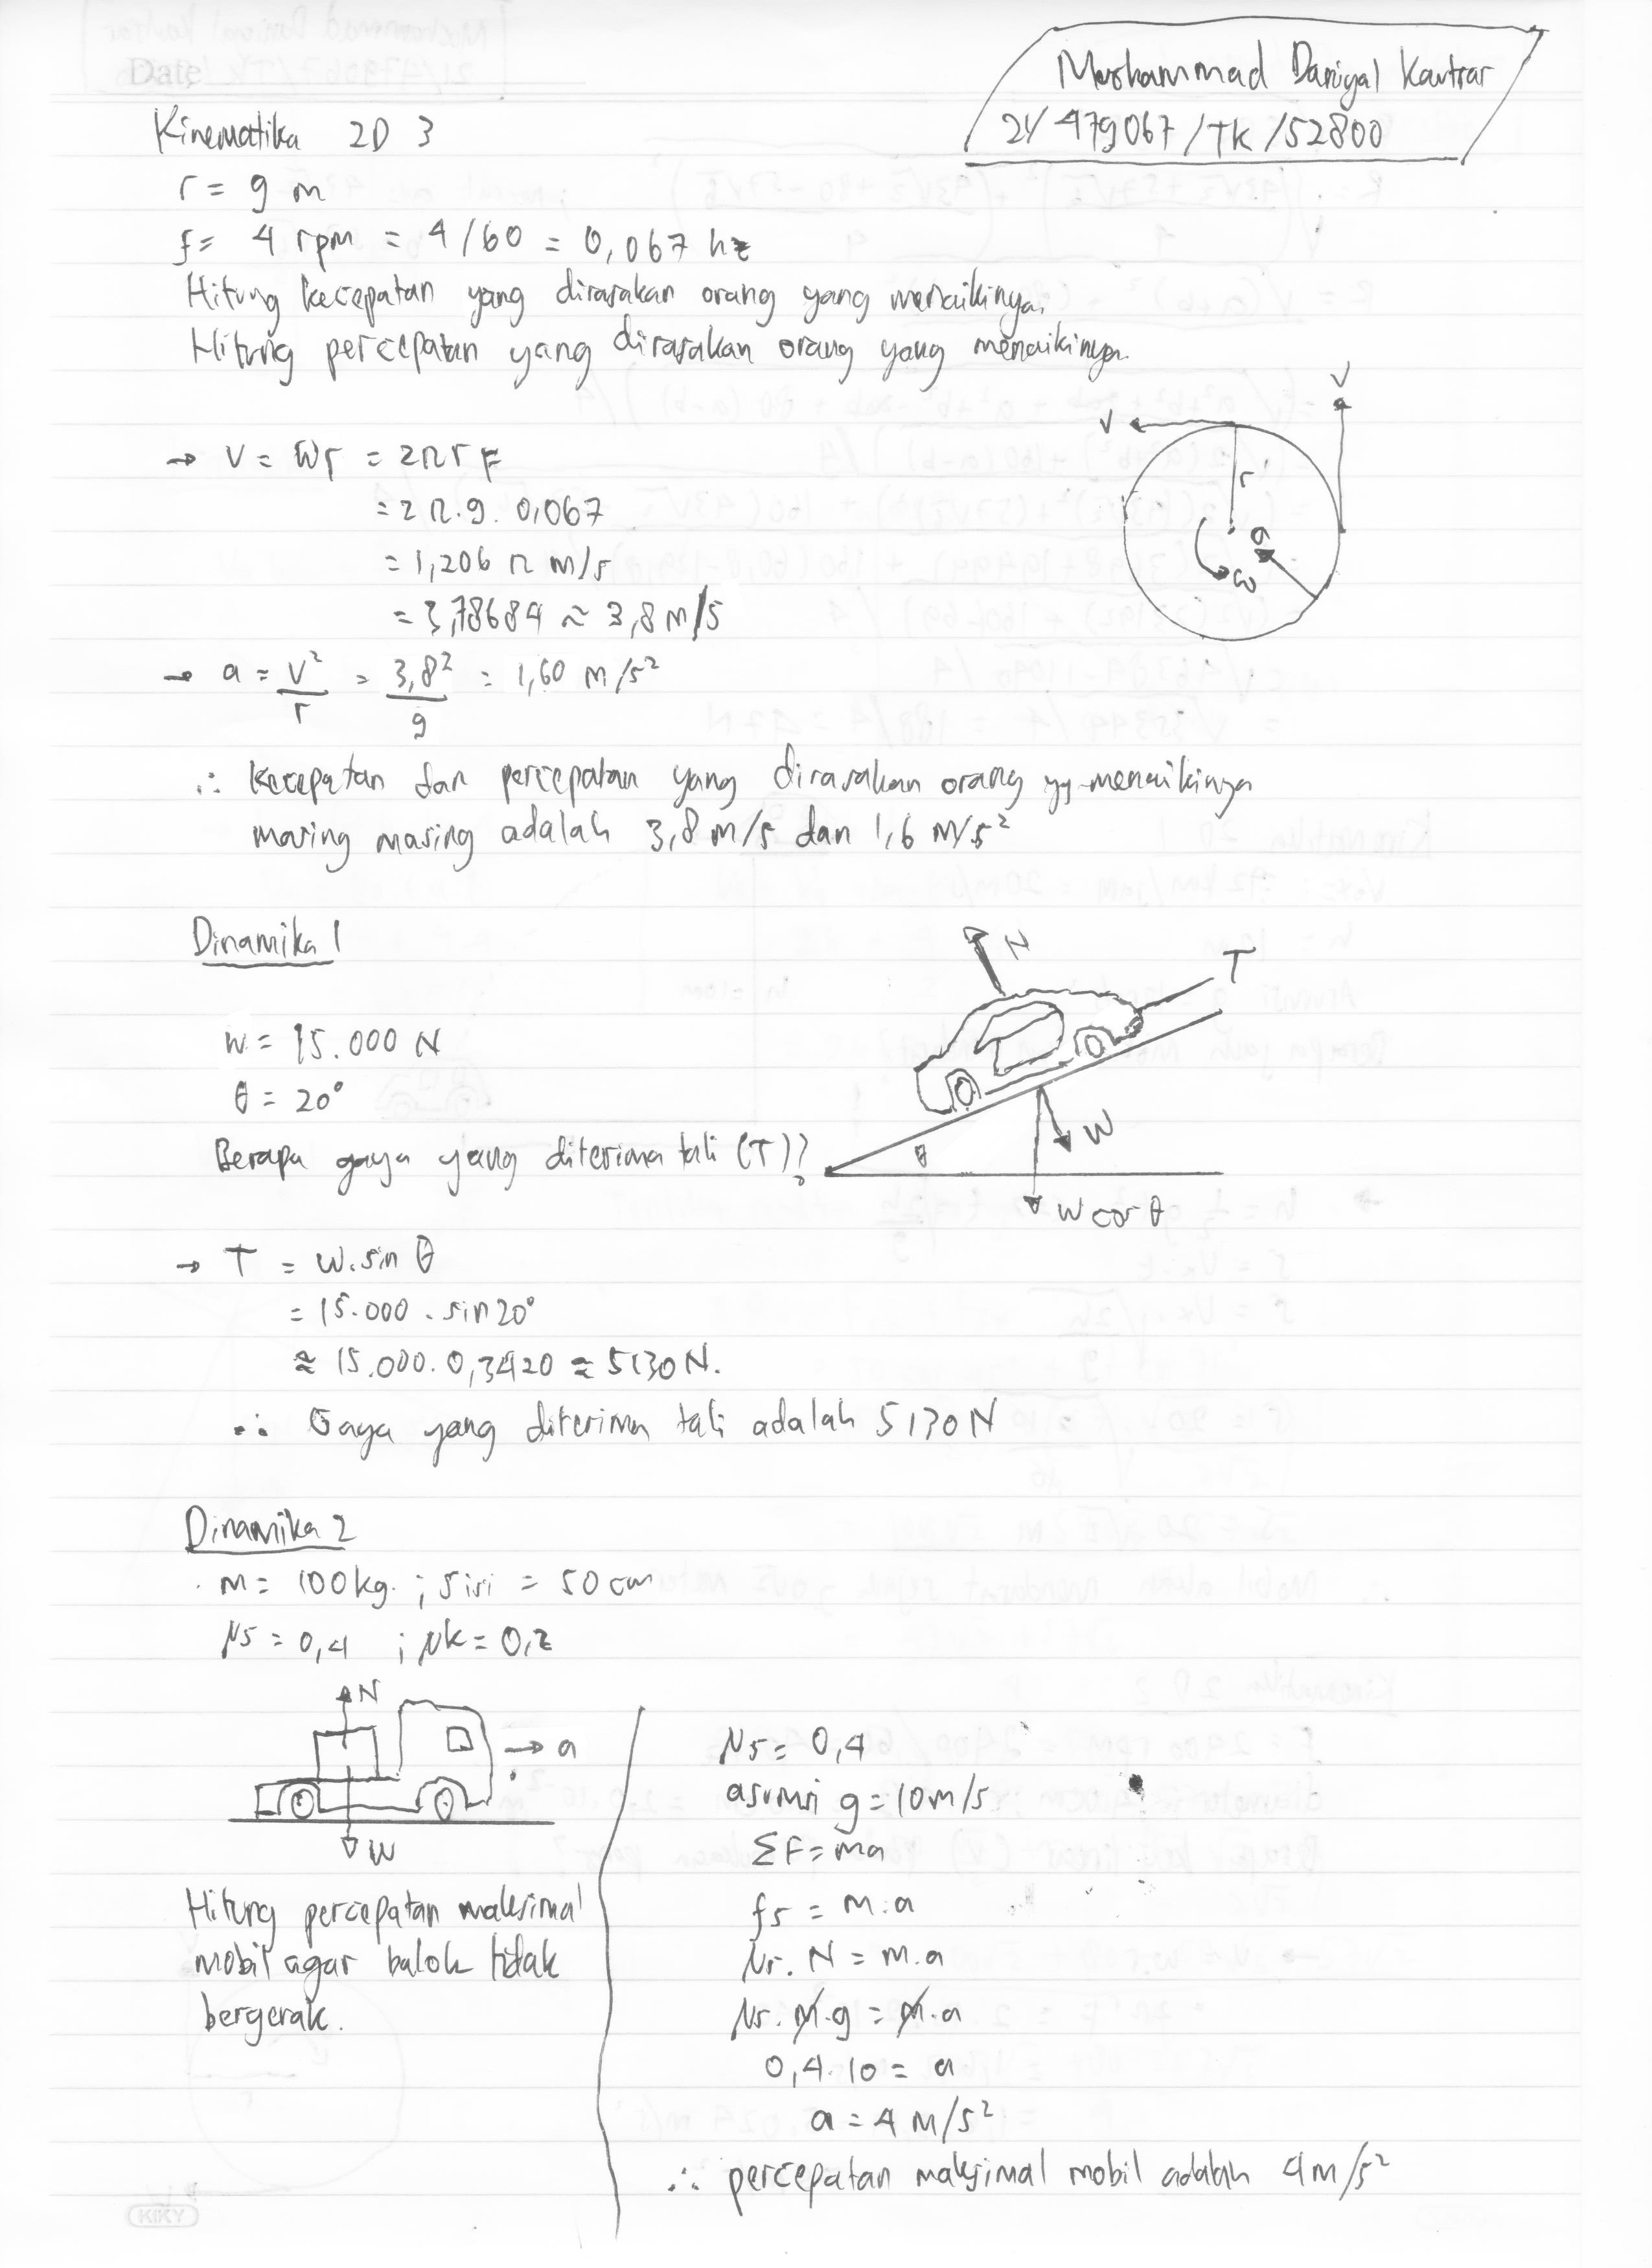 Date
Muohammad Daniyal Kautsar
21/479067/TK/52800
Kinematika 2D 3
r = 9 m
f = 4 rpm = 4/60 = 0,067 hz
Hitung kecepatan yang dirasakan orang yang menaikinya.
Hitung percepatan yang dirasakan orang yang menaikinya.
→ V = ωr = 2πrf
= 2π.9. 0,067
= 1,206 π m/s
= 3,78684 ≈ 3,8 m/s
→ a = V²/r = 3,8²/9 = 1,60 m/s²
V
V
r
a
ω
∴ Kecepatan dan percepatan yang dirasakan orang yg menaikinya
masing masing adalah 3,8 m/s dan 1,6 m/s²
Dinamika 1
w = 15.000 N
θ = 20°
Berapa gaya yang diterima tali (T)?
N
T
θ
W
W cos θ
→ T = w.sin θ
= 15.000 . sin 20°
≈ 15.000. 0,3420 ≈ 5130 N.
∴ Gaya yang diterima tali adalah 5130 N
Dinamika 2
m = 100 kg ; sisi = 50 cm
μs = 0,4 ; μk = 0,2
N
→ a
W
Hitung percepatan maksimal
mobil agar balok tidak
bergerak.
μs = 0,4
asumsi g = 10 m/s
ΣF = ma
fs = m.a
μs. N = m.a
μs. m.g = m.a
0,4.10 = a
a = 4 m/s²
∴ percepatan maksimal mobil adalah 4 m/s²
KIKY